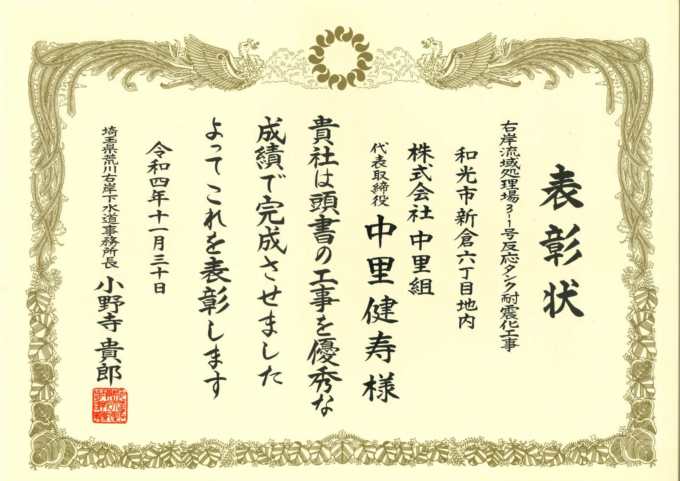 表彰状
右岸流域処理場3-1号反応タンク耐震化工事
和光市新倉六丁目地内
株式会社 中里組
代表取締役 中里健寿様
貴社は頭書の工事を優秀な
成績で完成させました
よってこれを表彰します
令和四年十一月三十日
埼玉県荒川右岸下水道事務所長 小野寺 貴郎